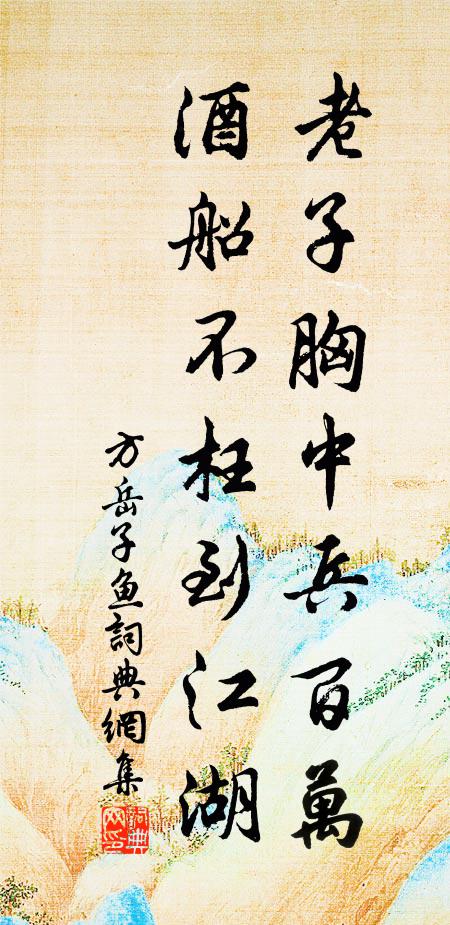 老子胸中兵百萬
酒船不枉到江湖
方岳子魚詞典網集
詞典